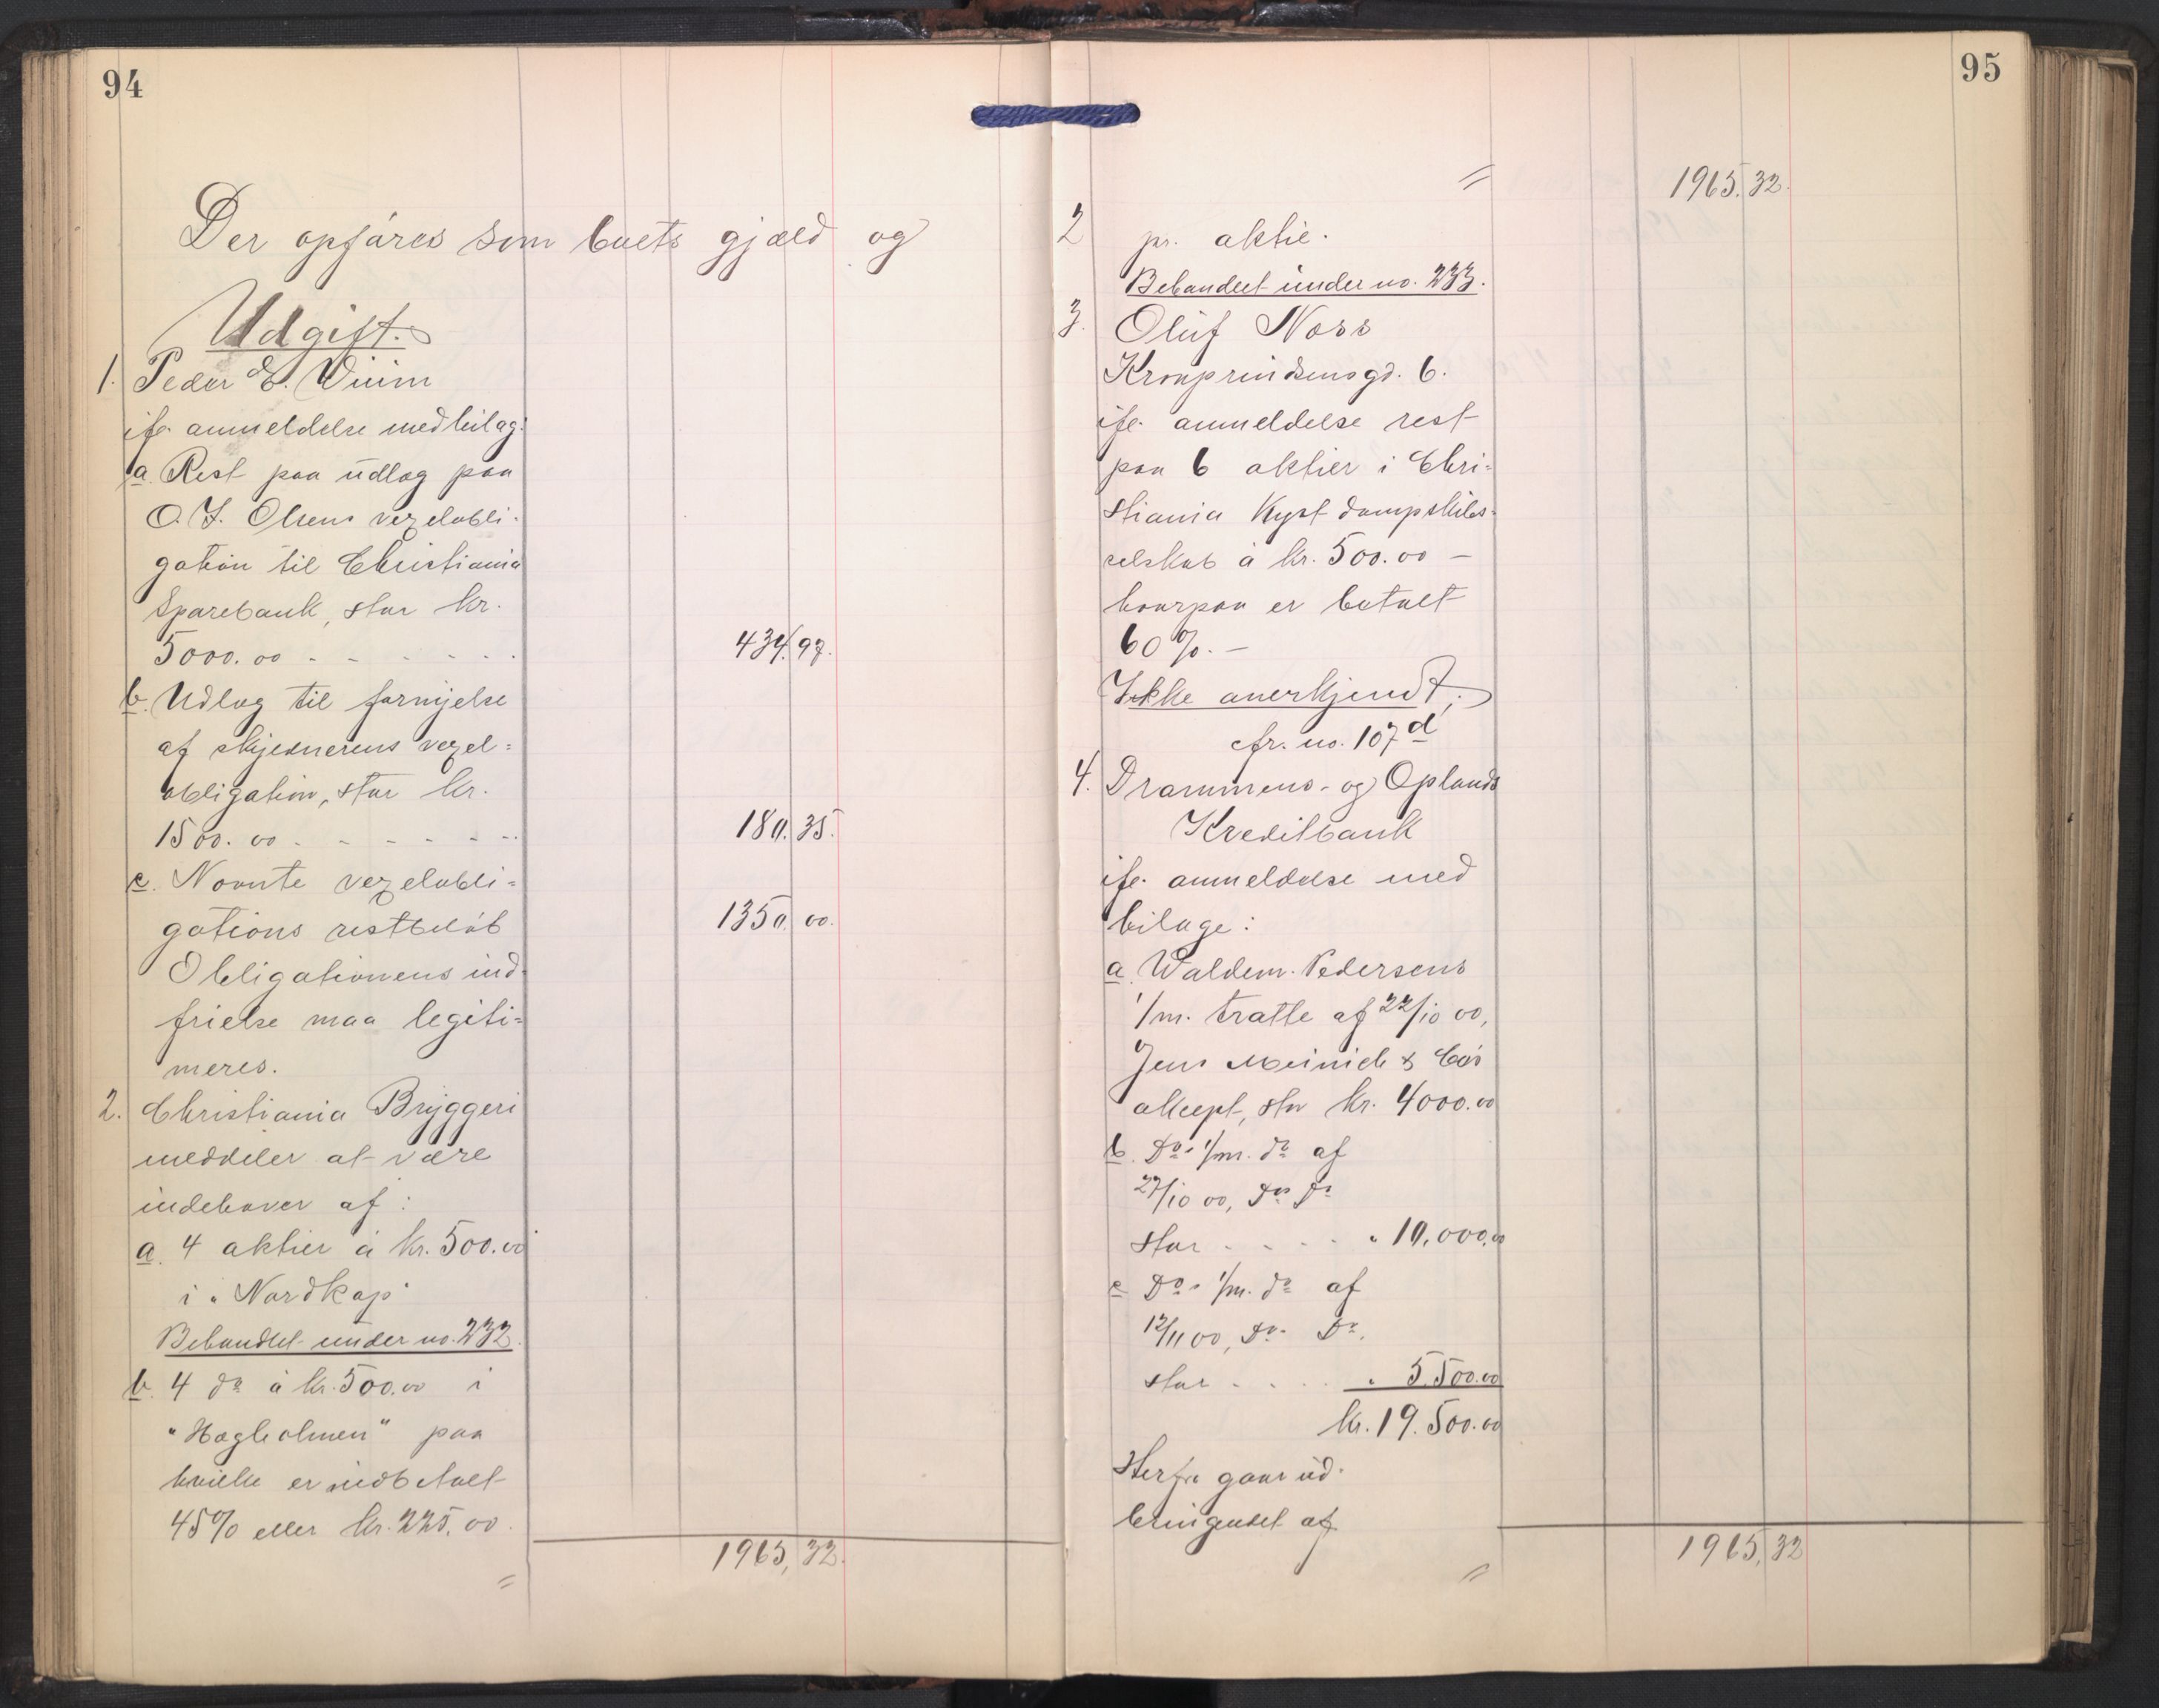 94
Der opføres som boets gjæld og
Udgift.
1. Peder E. Wium
ifl. anmeldelse med bilag:
a. Rest paa udlæg paa
O. J. Olsens vexelobli-
gation til Christiania
Sparebank, stor kr.
5000.00 - - - - - - 434.97.
b. Udlæg til fornyelse
af skjødnerens vexel=
obligation, stor kr.
1500.00 - - - - - - 180.35.
c. Nævnte vexelobli=
gations restbeløb 1350.00.
Obligationens ind-
frielse maa legiti=
meres.
2. Christiania Bryggeri
meddeler at være
indehaver af:
a. 4 aktier à kr. 500.00
i "Nordkap"
Behandlet under no. 232.
b. 4 do à kr. 500.00 i
"Hægholmen" paa
hvilke er indbetalt
45% eller kr. 225.00.
1965,32.
=
95
= 1965.32.
2 pr. aktie.
Behandlet under no. 233.
3. Oluf Noss
Kronprindsensgd. 6.
ifl. anmeldelse rest
paa 6 aktier i Chri=
stiania Kyst dampskibs=
selskab à kr. 500.00 -
hvorpaa er betalt
60%. -
Ikke anerkjendt;
cfr. no. 107 d
4. Drammens- og Oplands
Kreditbank
ifl. anmeldelse med
bilage:
a. Waldem. Pedersens
1/m. tratte af 22/10 00,
Jens Meinich & Co's
akcept, stor kr. 4000.00
b. Do's 1/m. do af
27/10 00, Do's Do
stor - - - - " 10.000.00
c. Do's 1/m. do af
12/11 00, Do's Do.
stor - - - - " 5.500.00
kr. 19.500.00
Herfra gaar ud-
bringendet af
1965,32
=